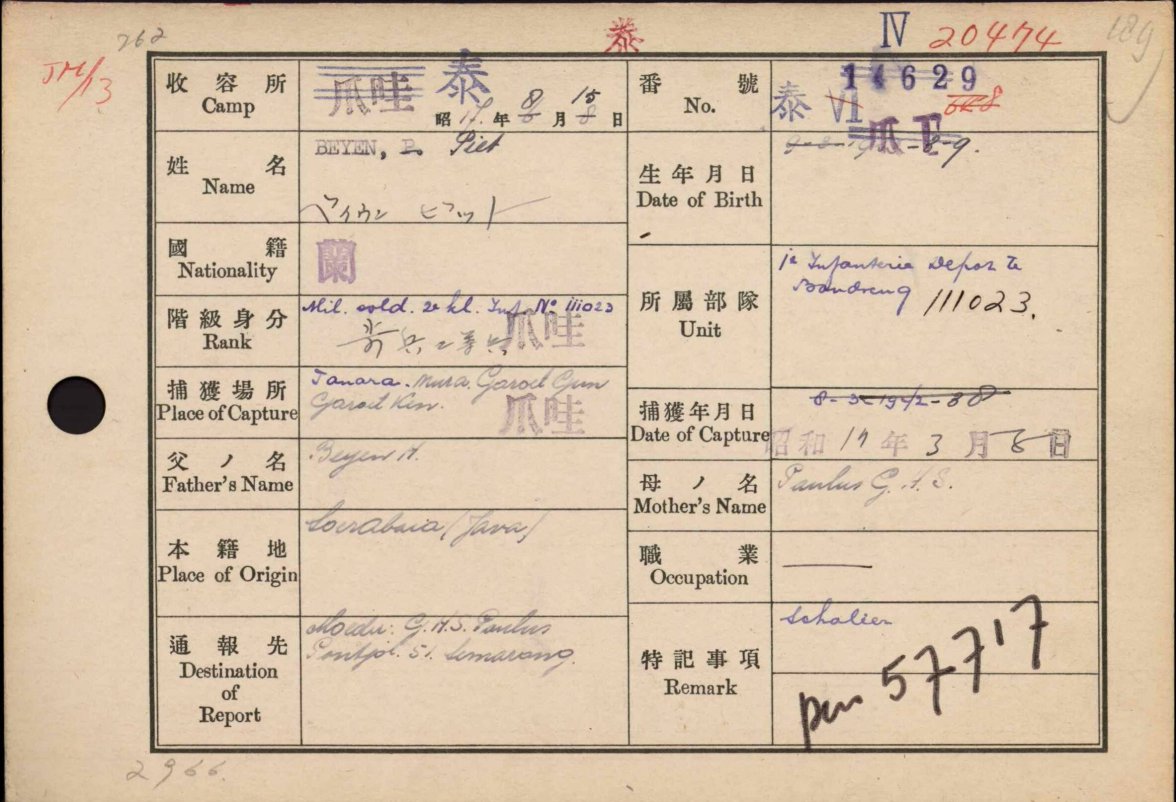 262
泰
IV 20474
189
JM/13
收容所
Camp
爪哇 泰
昭17.年8月15日
番號
No.
14629
泰 VI
爪
姓名
Name
BEYEN, P. Piet
生年月日
Date of Birth
國籍
Nationality
蘭
階級身分
Rank
Mil. sold. 2e kl. Inf. No 111023
爪哇
所屬部隊
Unit
1e Infanterie Depot te
111023.
捕獲場所
Place of Capture
Tanara. mura, Garoet Gun
Garoet Ken.
爪哇
捕獲年月日
Date of Capture
8-3-1942-
昭和17年3月8日
父ノ名
Father's Name
Beyen A.
母ノ名
Mother's Name
Paulus G.A.S.
本籍地
Place of Origin
Soerabaia (Java)
職業
Occupation
通報先
Destination
of
Report
Moeder: G.A.S. Paulus
51. Semarang.
特記事項
Remark
Scholier
57717
2966.